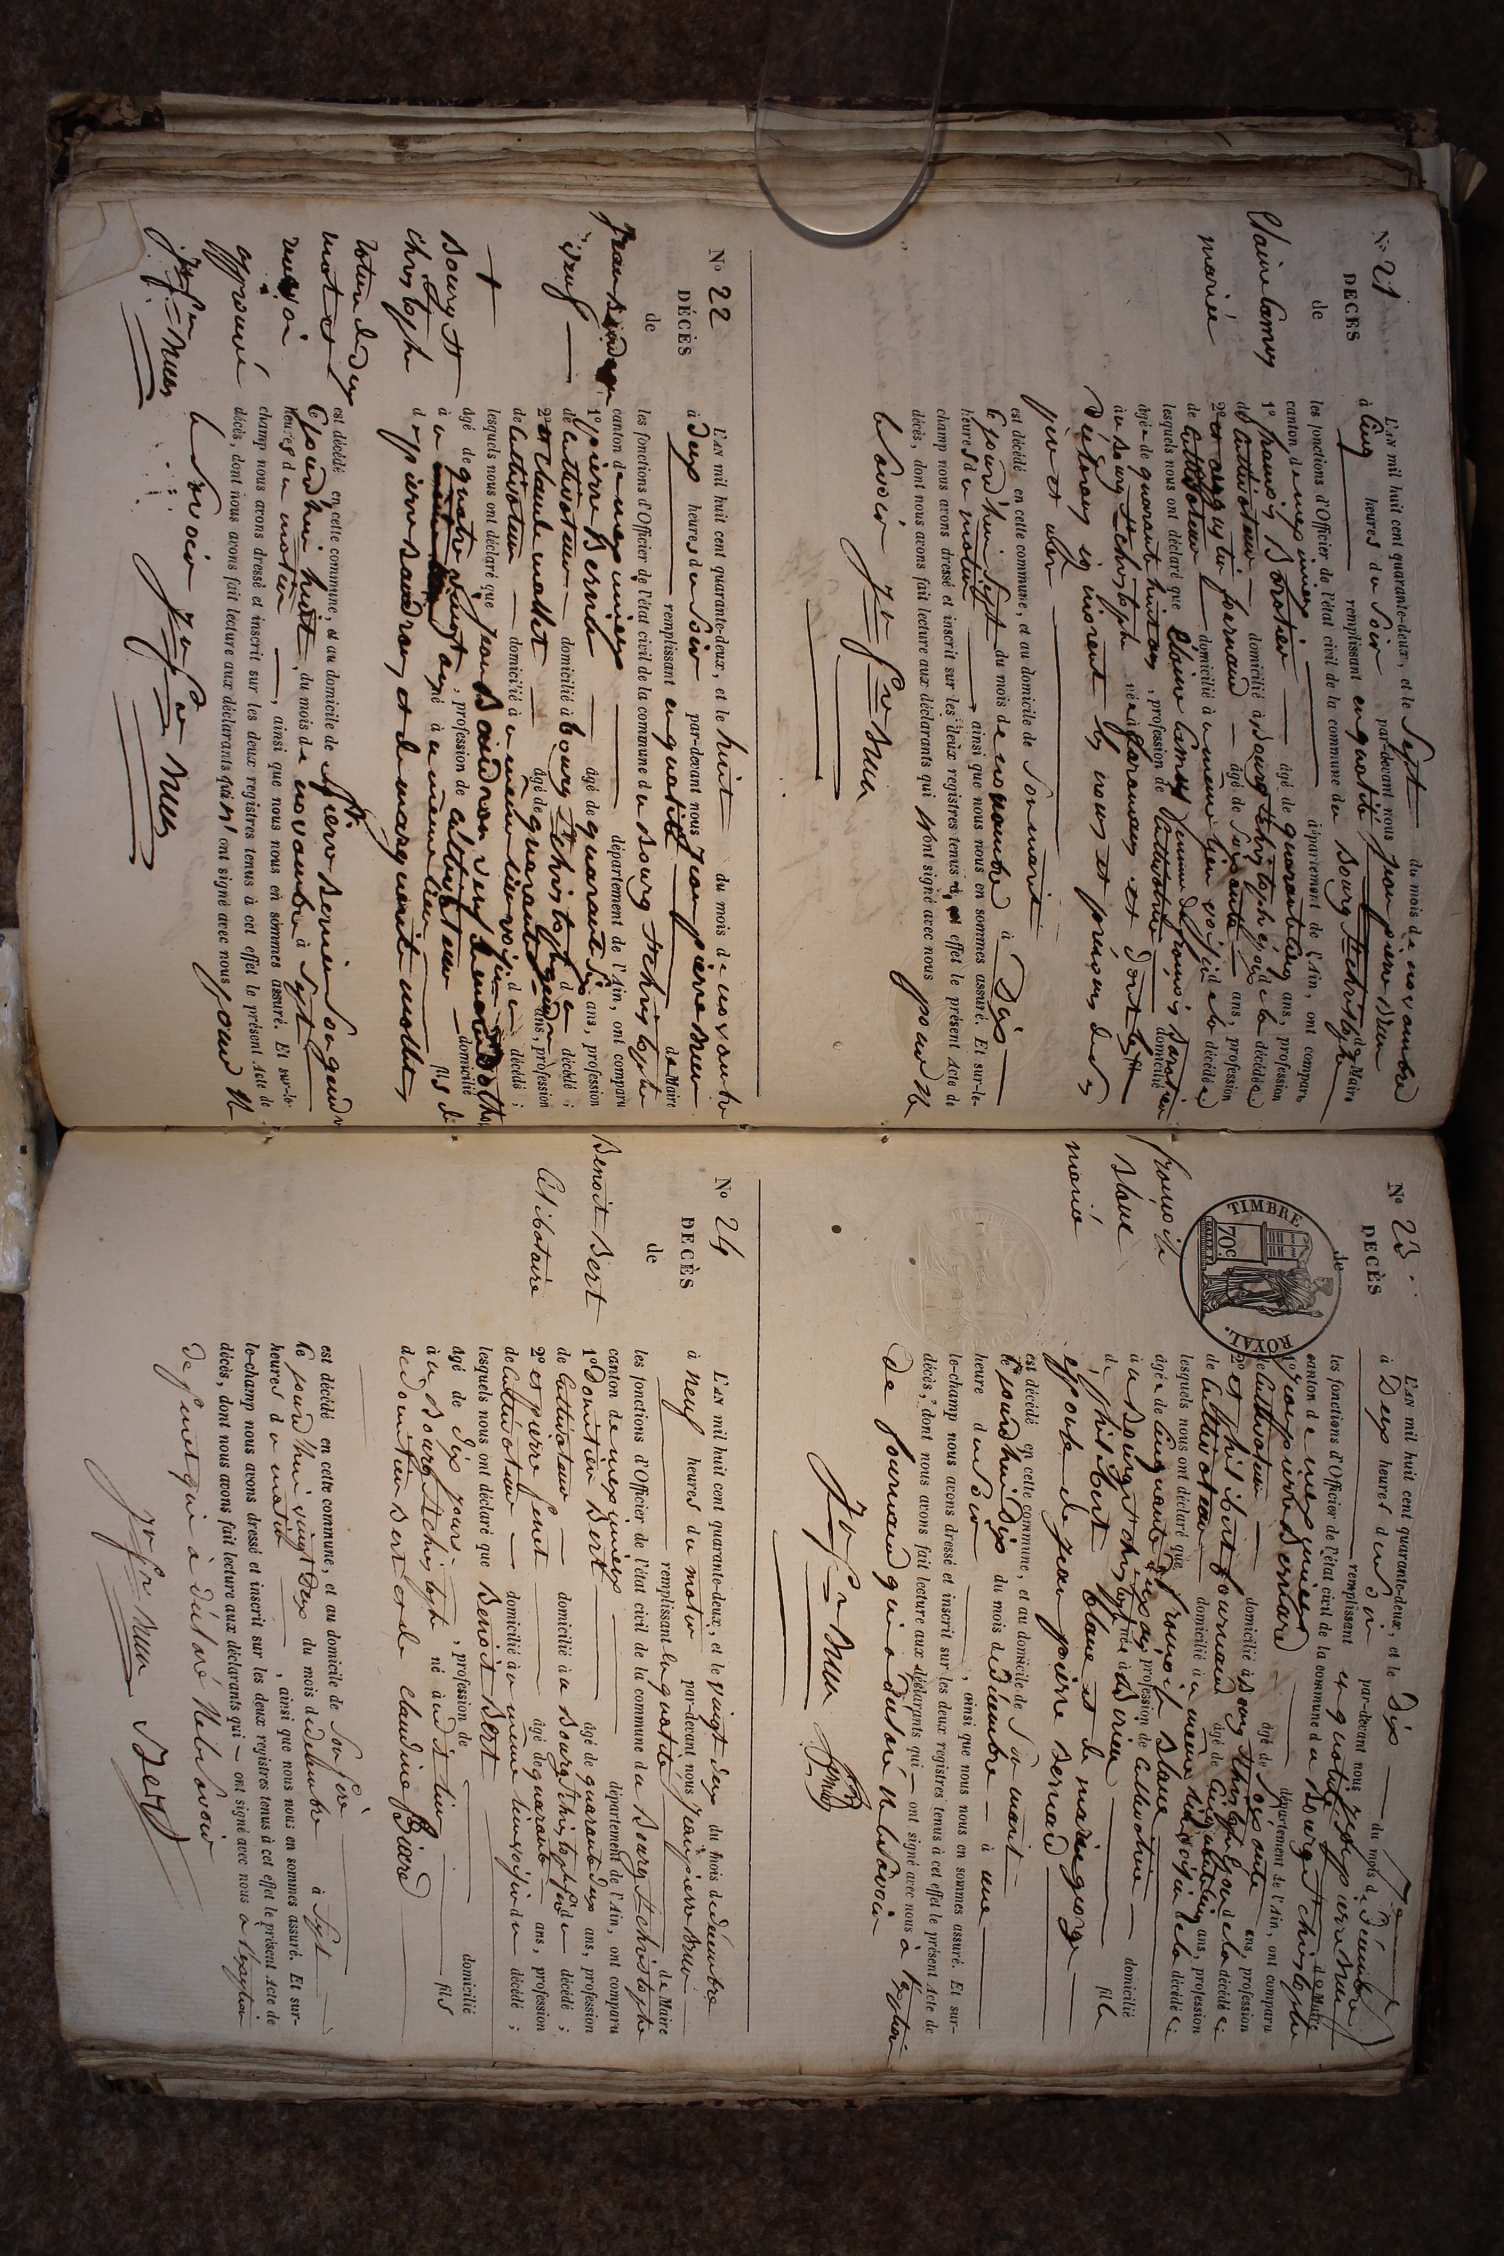 N° 21
DÉCÈS
de
Claire Camus
mariée
L'AN mil huit cent quarante-deux, et le Sept du mois de novembre
à Cinq heures du Soir par-devant nous jean pierre
remplissant en qualité de Maire
les fonctions d'Officier de l'état civil de la commune du Bourg St christophe
canton de meximieux département de l'Ain, ont comparu
1° françois âgé de quarante ans, profession
de Cultivateur domicilié à Bourg St christophe de la décédée
2° et augustin fornaud âgé de soixante ans, profession
de Cultivateur domicilié à même lieu voisin de la décédée
lesquels nous ont déclaré que Claire Camus femme de françois
âgée de quarante huit ans, profession de Cultivatrice domicilié
au Bourg St christophe née à et dont les
déclarans ignorent les noms et prénoms des
père et mère
est décédé en cette commune, et au domicile de Son mari
le jourd'hui Sept du mois de novembre à Dix
heures du matin, ainsi que nous nous en sommes assuré. Et sur-le-
champ nous avons dressé et inscrit sur les deux registres tenus à cet effet le présent Acte de
décès, dont nous avons fait lecture aux déclarants qui n'ont signé avec nous pour ne
le Savoir
N° 22
DÉCÈS
de
jean Baudran
veuf
L'AN mil huit cent quarante-deux, et le huit du mois de novembre
à deux heures du Soir par-devant nous jean pierre
remplissant en qualité de Maire
les fonctions d'Officier de l'état civil de la commune du Bourg St christophe
canton de meximieux département de l'Ain, ont comparu
1° pierre Bernin âgé de quarante ans, profession
de cultivateur domicilié à bourg St christophe gendre du décédé ;
2° et Claude mallet âgé de quarante ans, profession
de cultivateur domicilié à même lieu voisin du décédé ;
lesquels nous ont déclaré que jean Baudran veuf
âgé de quatre vingt, profession de cultivateur domicilié
à né à au même lieu fils de
de pierre Baudran et de marguerite mathe
est décédé en cette commune, et au domicile de pierre Bernin Son gendre
le jourd'hui huit, du mois de novembre à Sept
heures du matin, ainsi que nous nous en sommes assuré. Et sur-le-
champ nous avons dressé et inscrit sur les deux registres tenus à cet effet le présent Acte de
décès, dont nous avons fait lecture aux déclarants qui n'ont signé avec nous pour ne
le Savoir
+
Bourg St
christophe
mots
approuvé
N° 23
DECÈS
de
TIMBRE ROYAL.
70c.
françoise
Blanc
mariée
L'AN mil huit cent quarante-deux, et le Dix du mois de Décembre
à Deux heures du Soir par-devant nous jean pierre
remplissant en qualité de Maire
les fonctions d'Officier de l'état civil de la commune du Bourg St christophe
canton de meximieux département de l'Ain, ont comparu
1° jean pierre Bernard âgé de Soixante ans, profession
de Cultivateur domicilié à Bourg St christophe de la décédée
2° et philibert fournaud âgé de Cinquante ans, profession
de Cultivateur domicilié à même lieu voisin de la décédée
lesquels nous ont déclaré que françoise Blanc
âgée de Cinquante ans, profession de Cultivatrice domicilié
à au Bourg St christophe née à fille
de philibert blanc et de marie george
épouse de jean pierre Bernard
est décédé en cette commune, et au domicile de Son mari
le jourd'hui Dix du mois de Décembre à une
heure du Soir, ainsi que nous nous en sommes assuré. Et sur-
le-champ nous avons dressé et inscrit sur les deux registres tenus à cet effet le présent Acte de
décès, dont nous avons fait lecture aux déclarants qui ont signé avec nous à l'exeption
de fournaud qui a déclaré ne le Savoir
N° 24
DECÈS
de
Benoit Bert
Célibataire
L'AN mil huit cent quarante-deux, et le vingt deux du mois de décembre
à neuf heures du matin par-devant nous jean pierre
remplissant la qualité de Maire
les fonctions d'Officier de l'état civil de la commune du Bourg St christophe
canton de meximieux département de l'Ain, ont comparu
1° Domitien Bert âgé de quarante deux ans, profession
de Cultivateur domicilié à au Bourg St christophe père du décédé ;
2° et pierre âgé de quarante ans, profession
de Cultivateur domicilié à au même lieu voisin du décédé ;
lesquels nous ont déclaré que Benoit Bert
âgé de dix jours, profession de domicilié
à au Bourg St christophe né à audit lieu fils
de domitien Bert et de claudine
est décédé en cette commune, et au domicile de Son père
le jourd'hui vingt deux du mois de décembre à Sept
heures du matin, ainsi que nous nous en sommes assuré. Et sur-
le-champ nous avons dressé et inscrit sur les deux registres tenus à cet effet le présent Acte de
décès, dont nous avons fait lecture aux déclarants qui ont signé avec nous à l'exeption
de qui a déclaré ne le Savoir
Bert